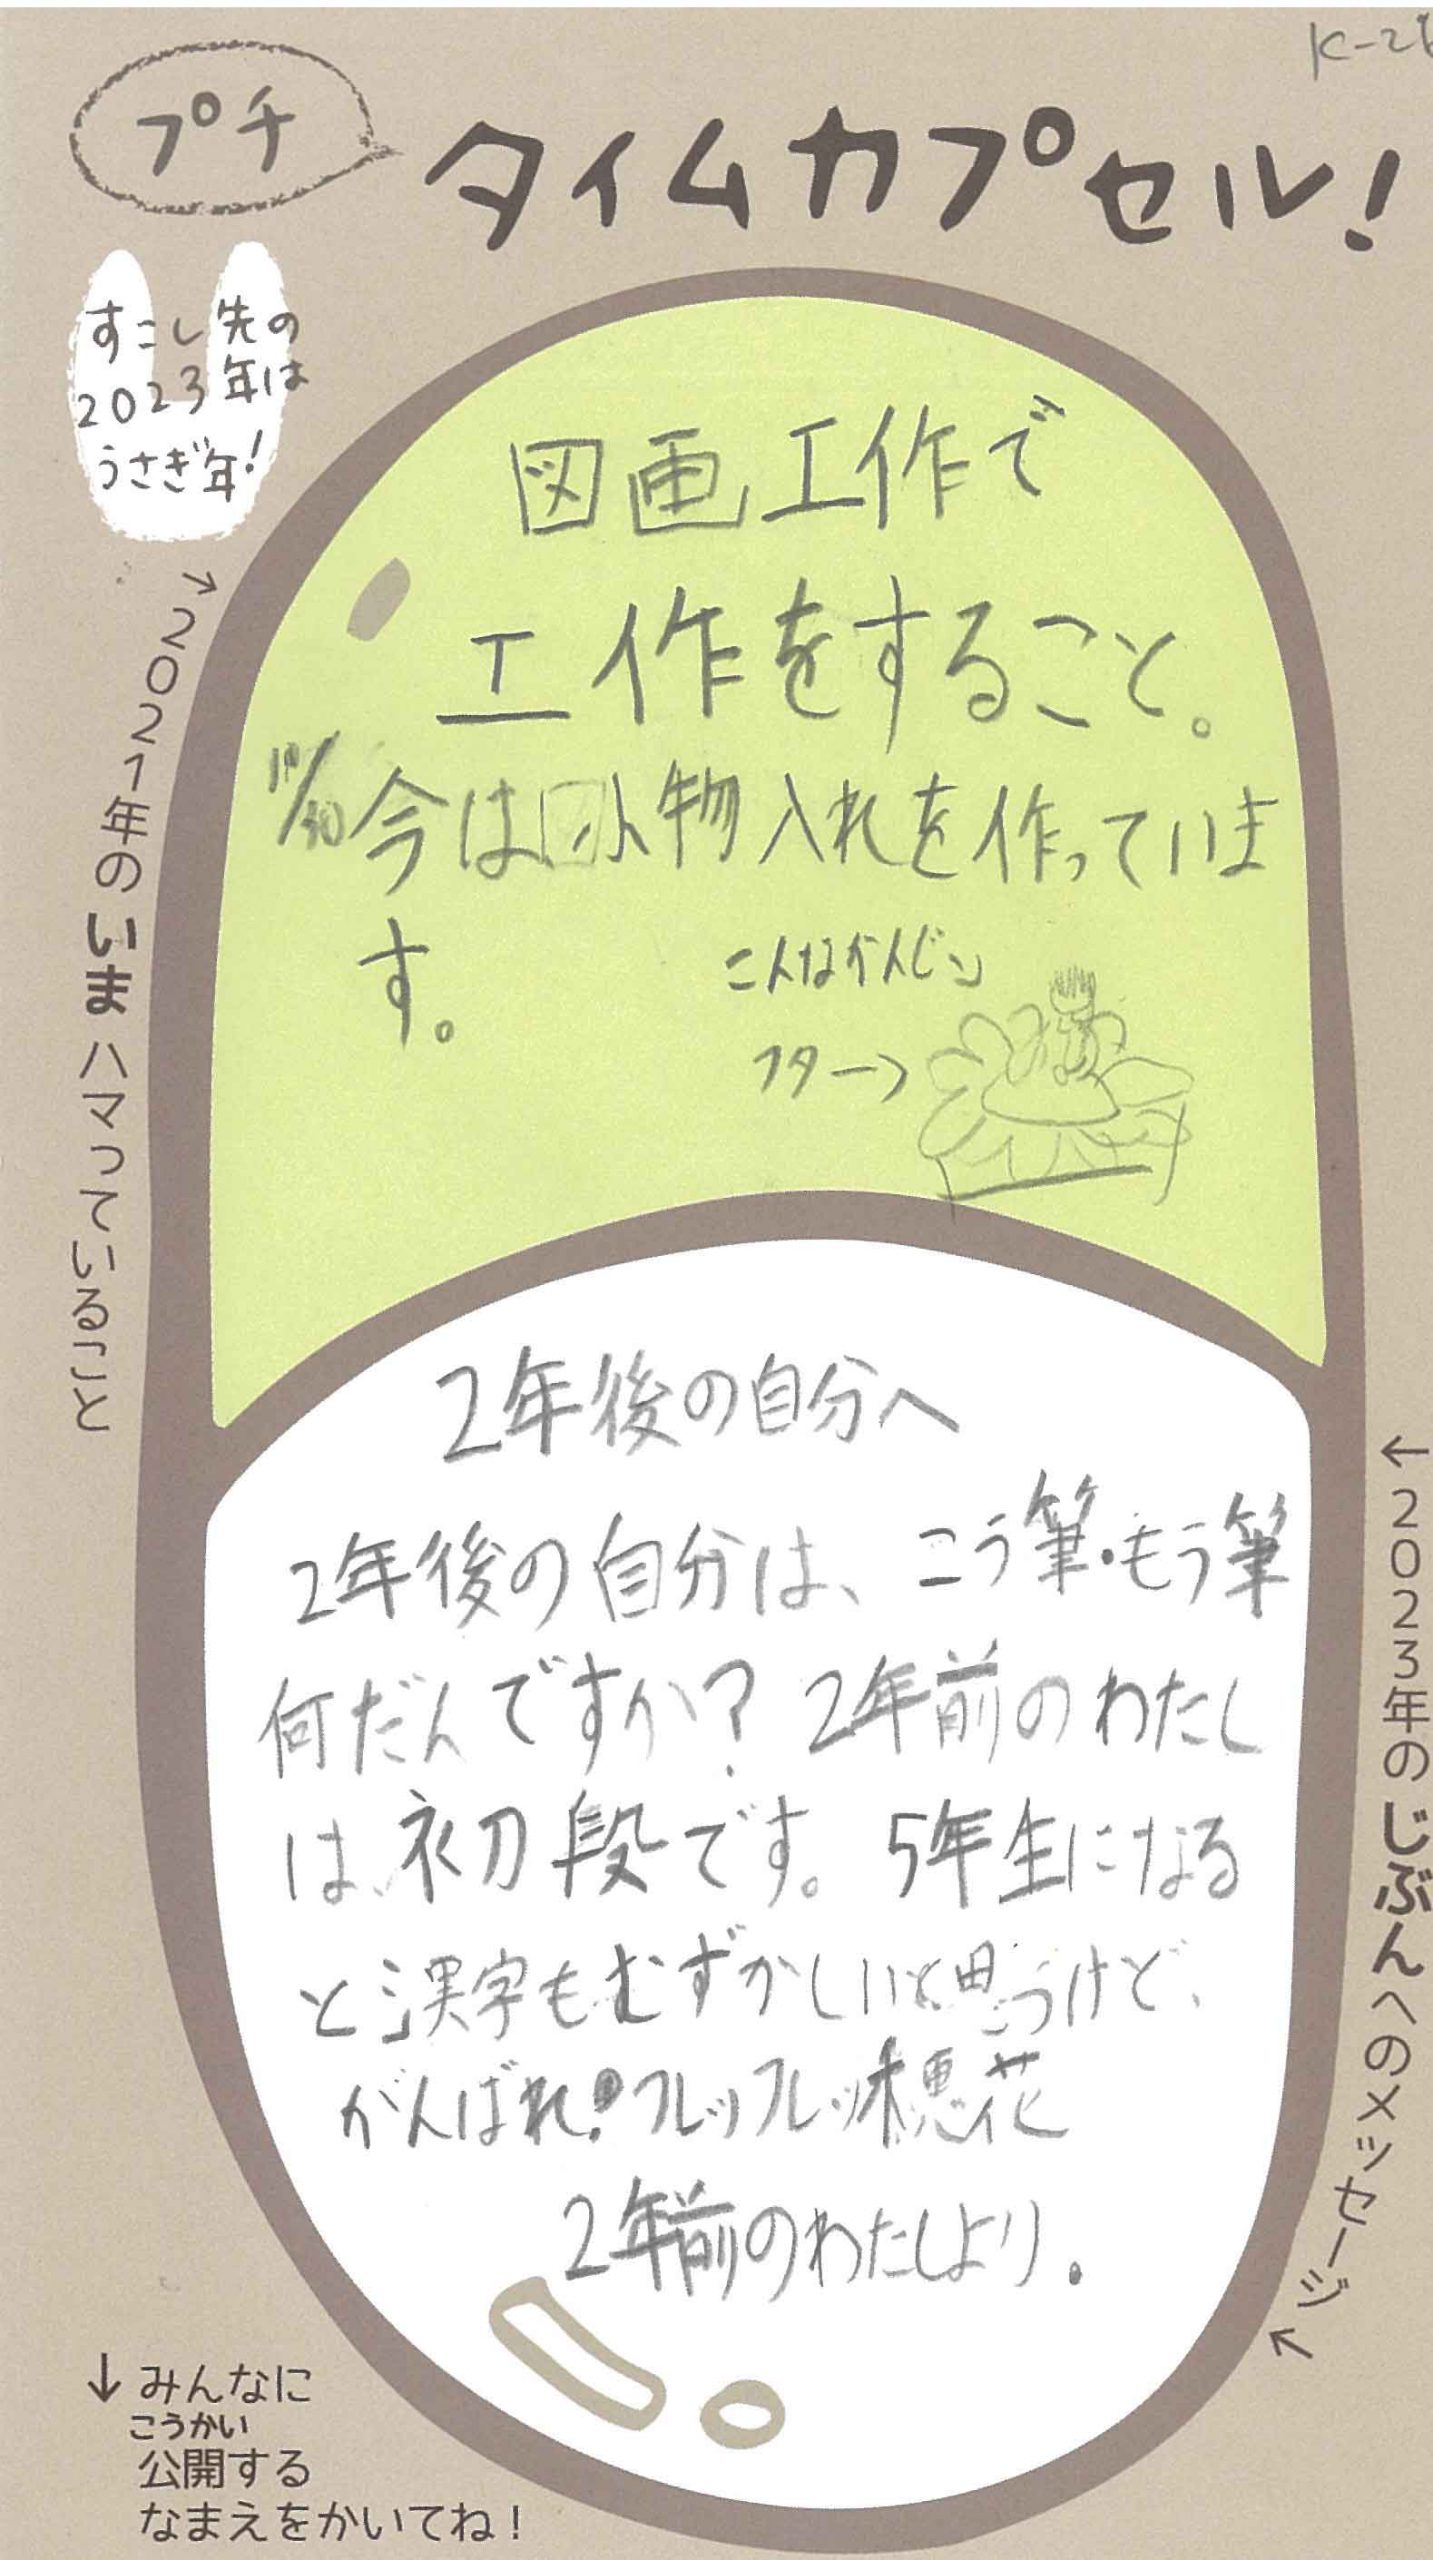 K-26
プチ
タイムカプセル!
すこし先の
2023年は
うさぎ年!
→2021年のいまハマっていること
図画工作で
工作をすること。
今は小物入れを作っていま
す。
こんなかんじ
フタ→
2年後の自分へ
2年後の自分は、こう筆・もう筆
何だんですか?2年前のわたし
は、初段です。5年生になる
と漢字もむずかしいと思うけど、
がんばれ!フレッフレッ穂花
2年前のわたしより.
←2023年のじぶんへのメッセージ
↓みんなに
こうかい
公開する
なまえをかいてね!